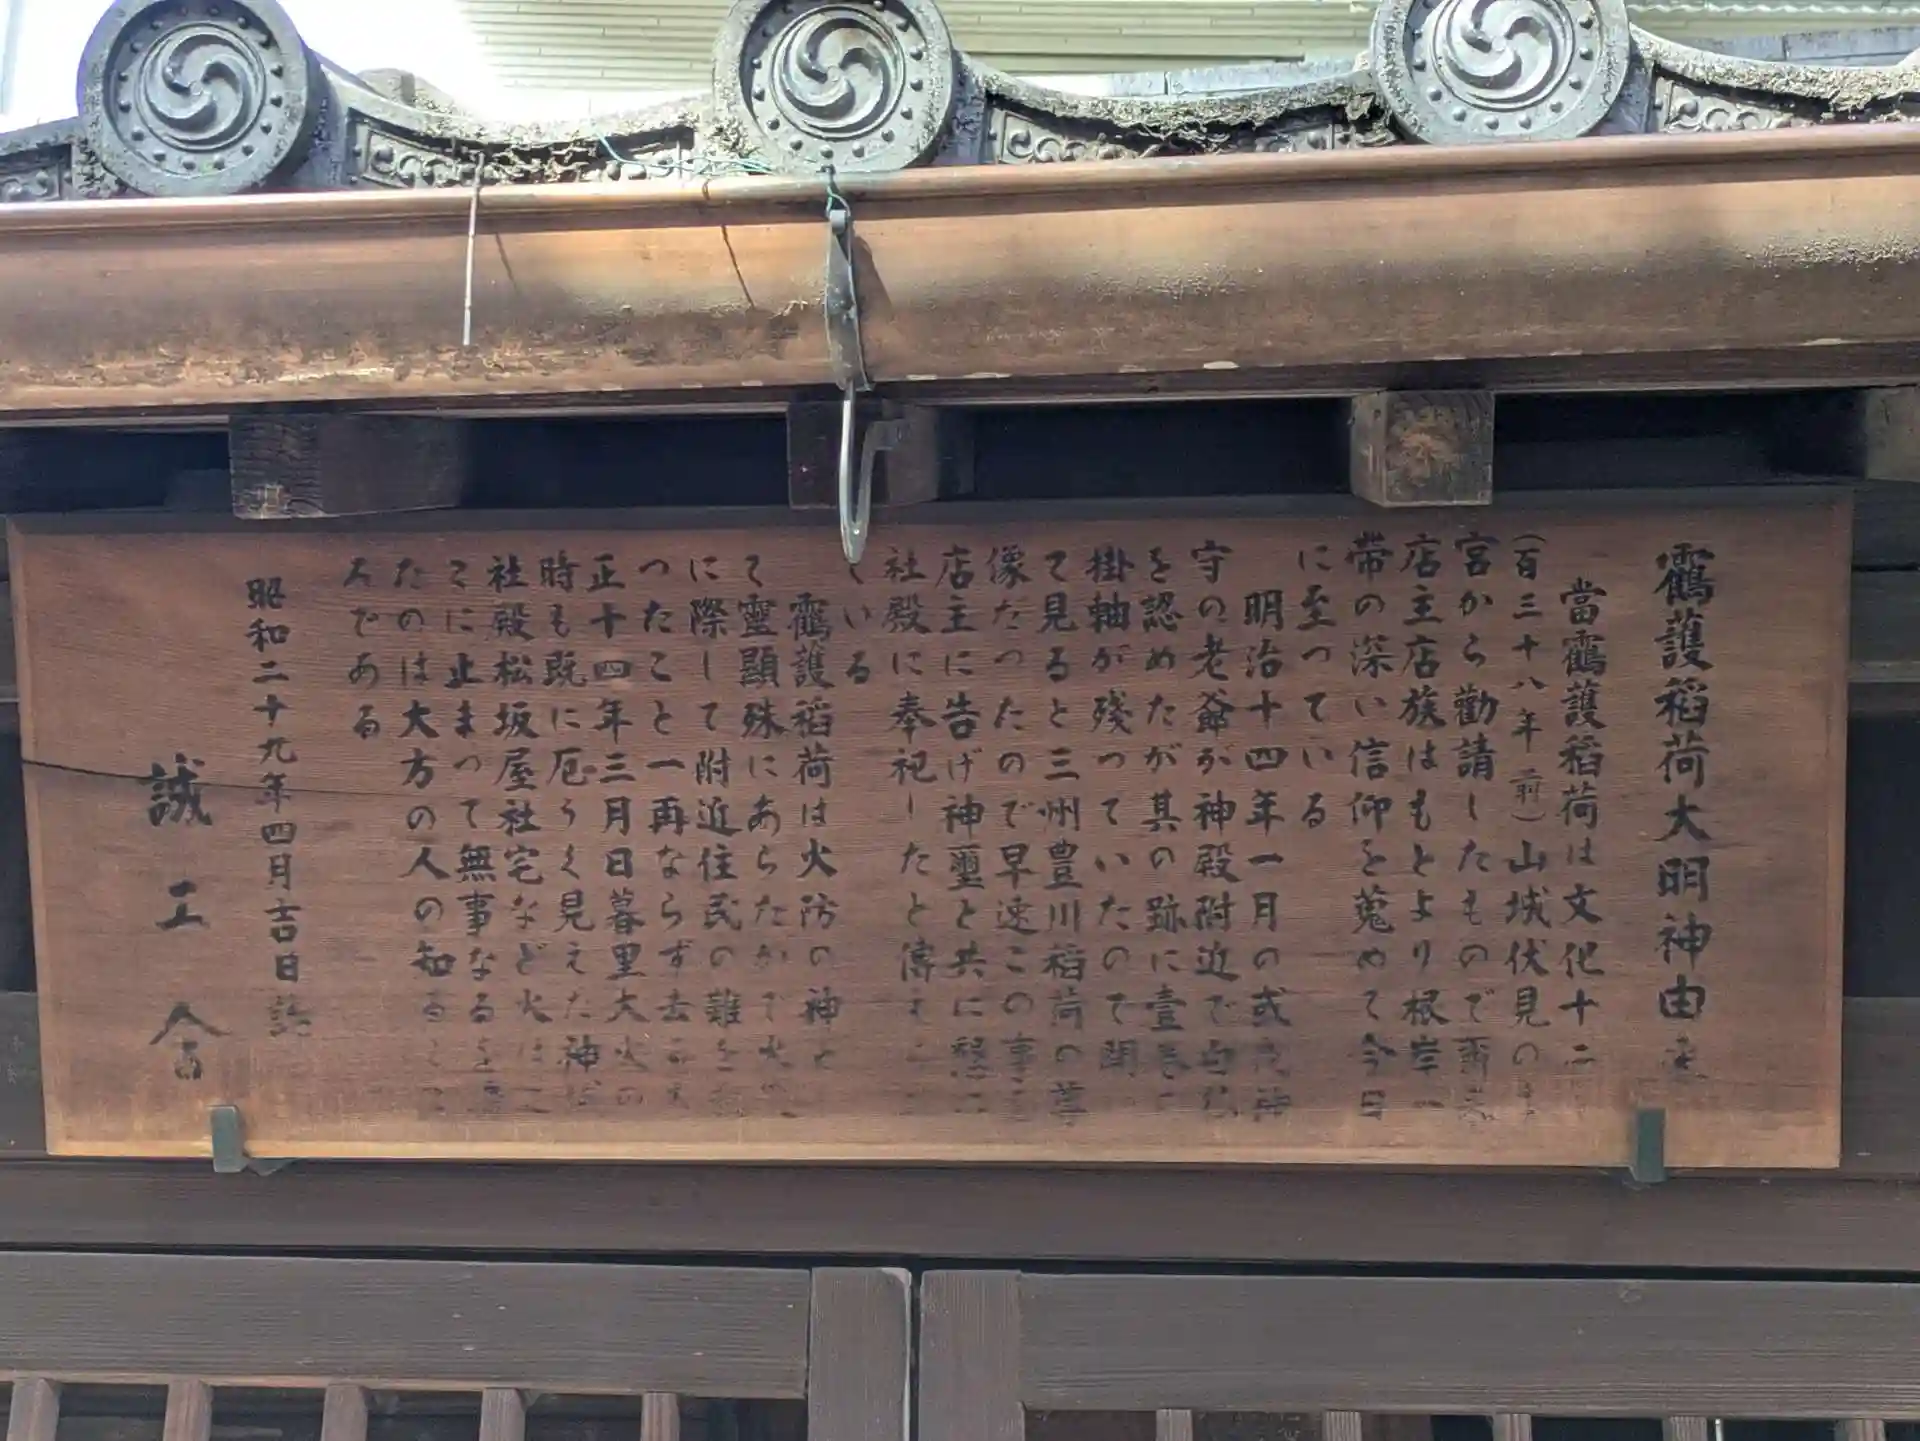 靏護稲荷大明神由来
當靏護稲荷は文化十二
(百三十八年前)山城伏見の
宮から勸請したもので爾来
店主店族はもとより根岸一
帯の深い信仰を蒐めて今日
に至つている
明治十四年一月の或夜神
守の老爺が神殿附近で白狐
を認めたが其の跡に壹巻の
掛軸が残つていたので開い
て見ると三州豊川稲荷の尊
像だつたので早速この事を
店主に告げ神璽と共に懇に
社殿に奉祀したと傳え
ている
靏護稲荷は火防の神と
て靈顯殊にあらたかで火災
に際して附近住民の難を
つたこと一再ならず去る大
正十四年三月日暮里大火の
時も既に厄うく見えた神
社殿松坂屋社宅など火は
こに止まつて無事なるを
たのは大方の人の知るとこ
ろである
昭和二十九年四月吉日 誌
誠工舎